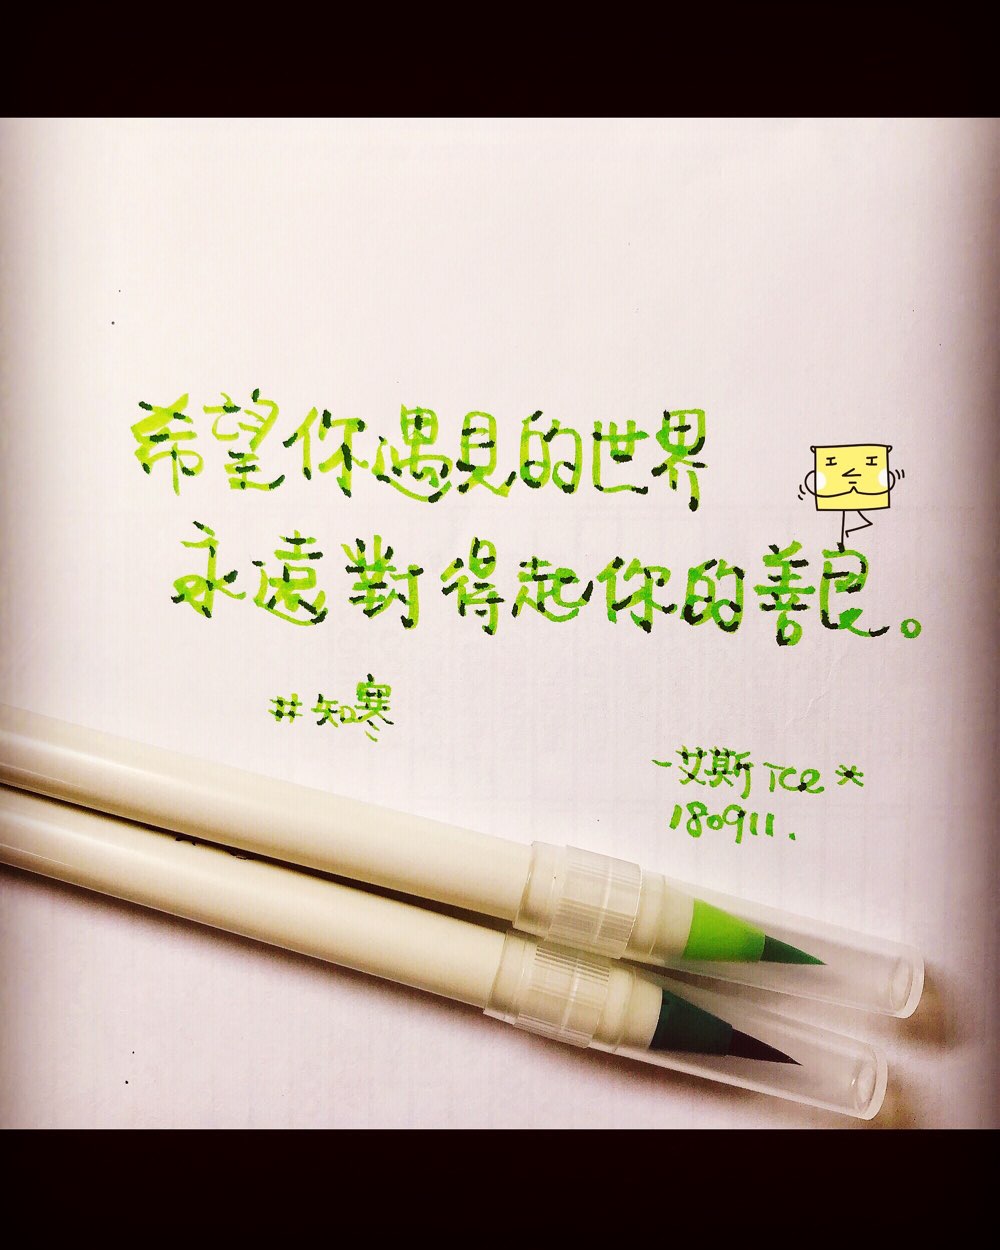 希望你遇見的世界
永遠對得起你的善良。
#知寒
-艾斯 Ice *
180911.